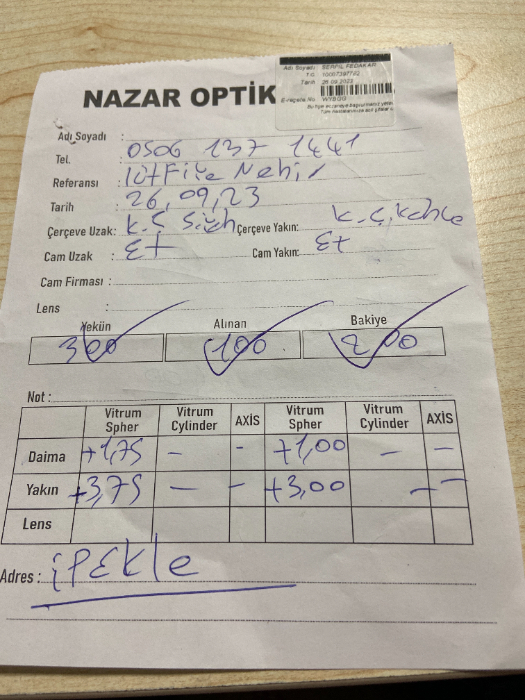 Adı Soyadı: SERPİL FEDAKAR
T.C.
Tarih 26.09.2023
E-reçete No
NAZAR OPTİK
Adı Soyadı :
Tel. : 0506 137 1441
Referansı : lütfiye Nehir
Tarih : 26,09,23
Çerçeve Uzak: K.Ç Siyh Çerçeve Yakın: K.Ç.Kahve
Cam Uzak : Et Cam Yakın: Et
Cam Firması :
Lens :
Yekün Alınan Bakiye
300 100 200
Not :
Vitrum Spher Vitrum Cylinder AXİS Vitrum Spher Vitrum Cylinder AXİS
Daima +1,75 — - +1,00 — —
Yakın +3,75 — - +3,00 — —
Lens
Adres : İPEKle